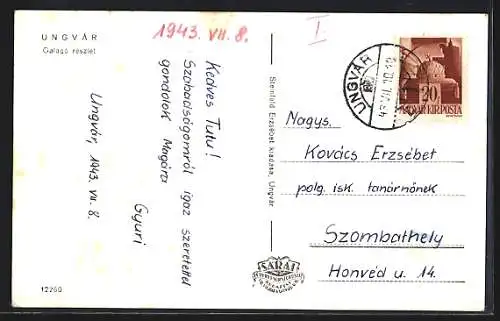 UNGVÁR
Galagó részlet
1943. VII. 8.
I
Kedves Tutu!
Szabadságomról igaz szeretettel
gondolok Magára
Gyuri
Ungvár, 1943. VII. 8.
12260
Steinfeld Erzsébet kiadása, Ungvár
BARAT
UNGVÁR
43 VII. 10. 10
20
MAGYAR KIR. POSTA
Nagys.
Kovács Erzsébet
polg. isk. tanárnőnek
Szombathely
Honvéd u. 14.